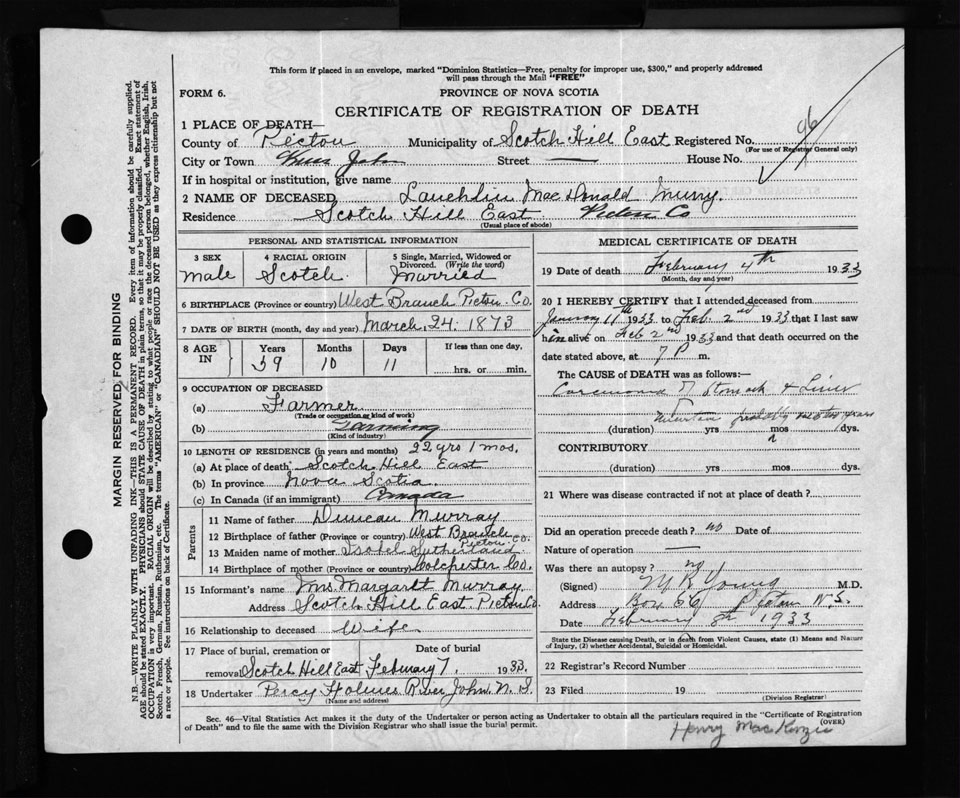 This form if placed in an envelope, marked "Dominion Statistics—Free, penalty for improper use, $300," and properly addressed
will pass through the Mail "FREE"
FORM 6.
PROVINCE OF NOVA SCOTIA
CERTIFICATE OF REGISTRATION OF DEATH
96
1 PLACE OF DEATH—
County of Pictou Municipality of Scotch Hill East Registered No.
(For use of Registrar General only)
City or Town John Street — House No.
If in hospital or institution, give name
2 NAME OF DECEASED Lauchlin MacDonald Murry.
Residence Scotch Hill East Pictou Co
(Usual place of abode)
PERSONAL AND STATISTICAL INFORMATION
3 SEX Male
4 RACIAL ORIGIN Scotch.
5 Single, Married, Widowed or Divorced. (Write the word) Married
6 BIRTHPLACE (Province or country) West Branch Pictou. Co.
7 DATE OF BIRTH (month, day and year) March. 24. 1873
8 AGE IN Years 59 Months 10 Days 11 If less than one day, hrs. or min.
9 OCCUPATION OF DECEASED
(a) Farmer
(Trade or occupation or kind of work)
(b) Farming
(Kind of industry)
10 LENGTH OF RESIDENCE (in years and months) 22 yrs 1 mos.
(a) At place of death Scotch Hill East
(b) In province Nova Scotia.
(c) In Canada (if an immigrant) Canada
Parents
11 Name of father Duncan Murray
12 Birthplace of father (Province or country) West Branch Pictou Co.
13 Maiden name of mother Isobel Sutherland.
14 Birthplace of mother (Province or country) Colchester Co.
15 Informant's name Mrs Margaret Murray
Address Scotch Hill East. Pictou Co.
16 Relationship to deceased Wife
17 Place of burial, cremation or removal Scotch Hill East Date of burial February 7, 1933.
18 Undertaker Percy Holmes River John, N. S.
(Name and address)
MEDICAL CERTIFICATE OF DEATH
19 Date of death February 4th 1933
(Month, day and year)
20 I HEREBY CERTIFY that I attended deceased from
January 11th 1933 to Feb. 2nd 1933 that I last saw
him alive on Feb 2nd 1933 and that death occurred on the
date stated above, at 7 P m.
The CAUSE of DEATH was as follows:—
Carcinoma of Stomach & Liver
(duration) yrs mos /dys.
CONTRIBUTORY
(duration) yrs mos dys.
21 Where was disease contracted if not at place of death?
Did an operation precede death? no Date of
Nature of operation —
Was there an autopsy? no
(Signed) M R Young M.D.
Address Box 66 Pictou N.S.
Date February 8th 1933
State the Disease causing Death, or in death from Violent Causes, state (1) Means and Nature
of Injury, (2) whether Accidental, Suicidal or Homicidal.
22 Registrar's Record Number
23 Filed 19
(Division Registrar)
Sec. 46—Vital Statistics Act makes it the duty of the Undertaker or person acting as Undertaker to obtain all the particulars required in the "Certificate of Registration
of Death" and to file the same with the Division Registrar who shall issue the burial permit.
(OVER)
Henry MacKenzie
MARGIN RESERVED FOR BINDING
N.B.—WRITE PLAINLY WITH UNFADING INK—THIS IS A PERMANENT RECORD. Every item of information should be carefully supplied.
AGE should be stated EXACTLY. PHYSICIANS should STATE CAUSE OF DEATH in plain terms, so that it may be properly classified. Exact statement of
OCCUPATION is very important. RACIAL ORIGIN will be described by stating to what people or race the deceased person belonged, whether English, Irish,
Scotch, French, German, Russian, Ruthenian, etc. The terms "AMERICAN" or "CANADIAN" SHOULD NOT BE USED as they express citizenship but not
a race or people. See instructions on back of Certificate.